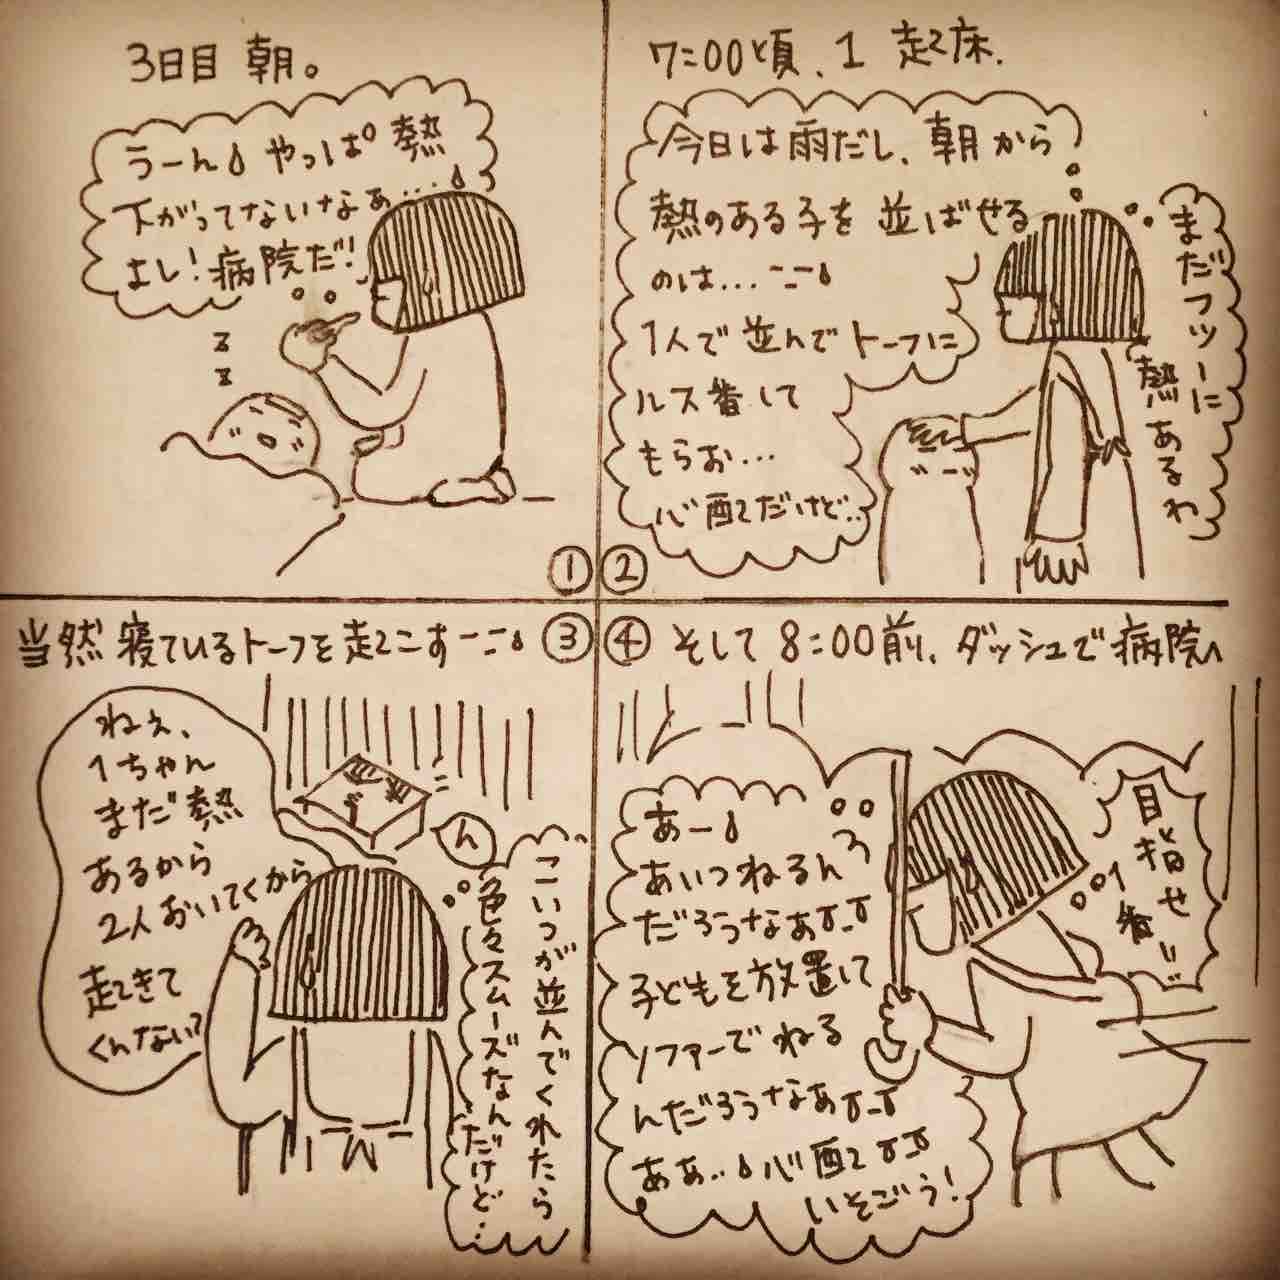 3日目 朝。
うーん やっぱ 熱
下がってないなぁ....
よし!病院だ!
z
z
①
7:00頃、1 起床.
今日は雨だし、朝から
熱のある子を 並ばせる
のは...
1人で並んでトーフに
ルス番して
もらお...
心配だけど..
まだフツーに
熱あるわ
②
当然 寝ているトーフを起こすー ③
ねぇ、
1ちゃん
まだ熱
あるから
2人おいてくから
起きて
くんない?
ん
こいつが並んでくれたら
色々スムーズなんだけど...
④ そして 8:00前、ダッシュで病院へ
あー
あいつねるん
だろうなぁT_T
子どもを放置して
ソファーでねる
んだろうなぁT_T
ああ.. 心配T_T
いそごう!
目指せ!!
1番